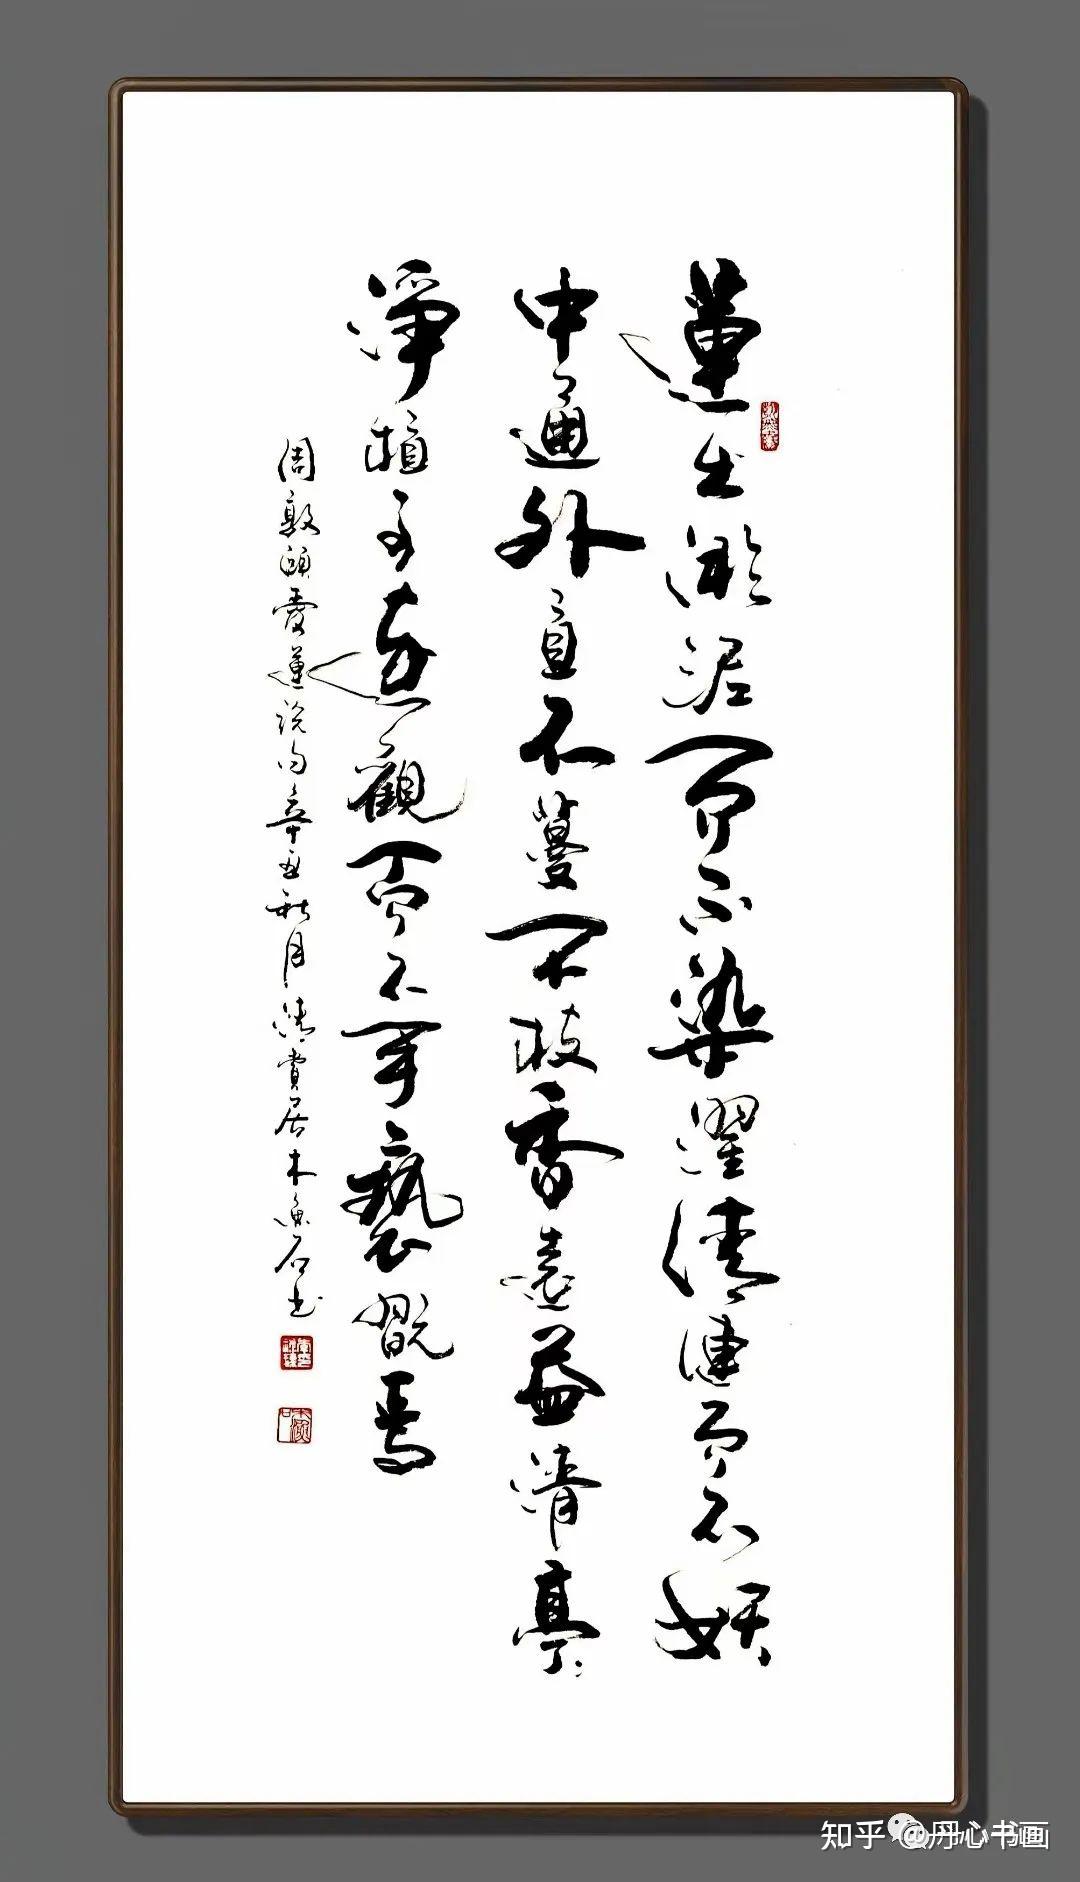 蓮出淤泥而不染濯清漣而不妖
中通外直不蔓不枝香遠益清亭〻
淨植可遠觀而不可褻翫焉
周敦頤愛蓮說句辛丑秋月清賞居木魚石書
知乎 @丹心书画